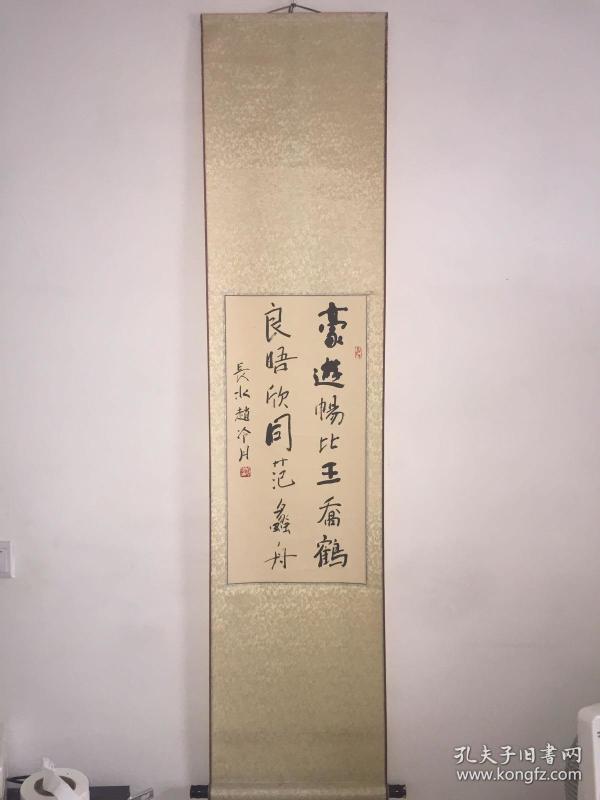 豪遊暢比王喬鶴
良晤欣同范蠡舟
長水趙冷月
孔夫子旧书网
www.kongfz.com